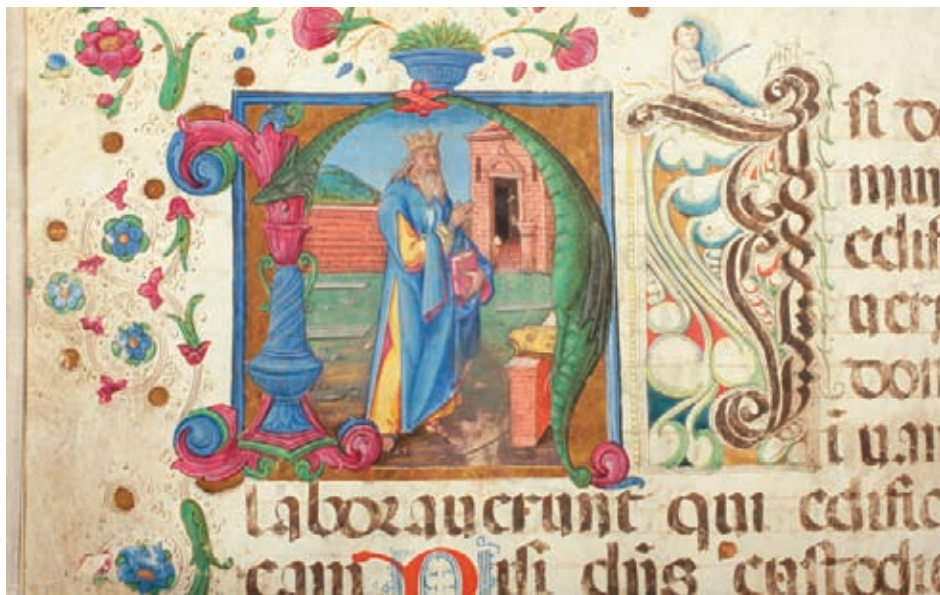 NIsi do
minu
edifi
ueri
dom
i uan
laborauerunt qui edific
eam Nisi dñs custodie